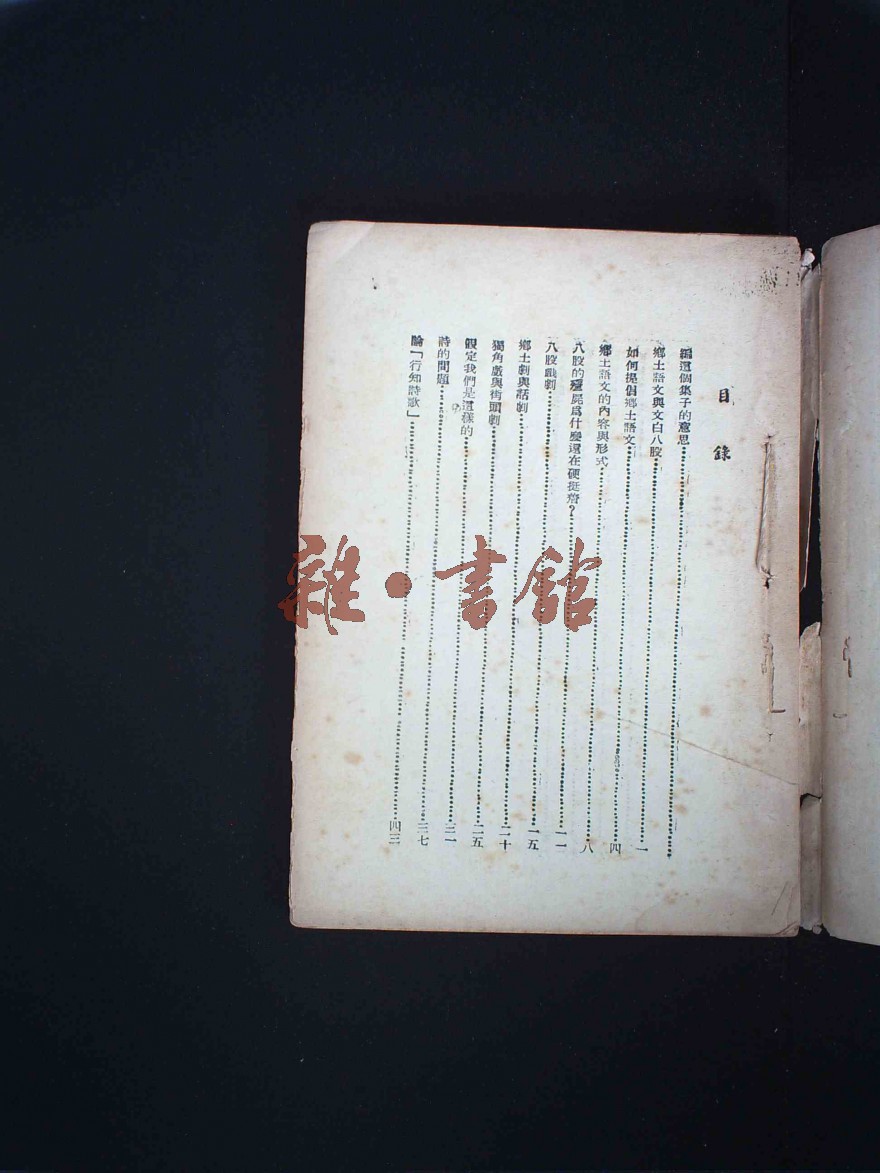 目錄
編這個集子的意思……
鄉土語文與文白八股……一
如何提倡鄉土語文……四
鄉土語文的內容與形式……八
八股的殭屍爲什麼還在硬挺着？……一一
八股戲劇……一五
鄉土劇與話劇……二十
獨角戲與街頭劇……二五
假定我們是這樣的……三一
詩的問題……三七
論「行知詩歌」……四三
雜·書館